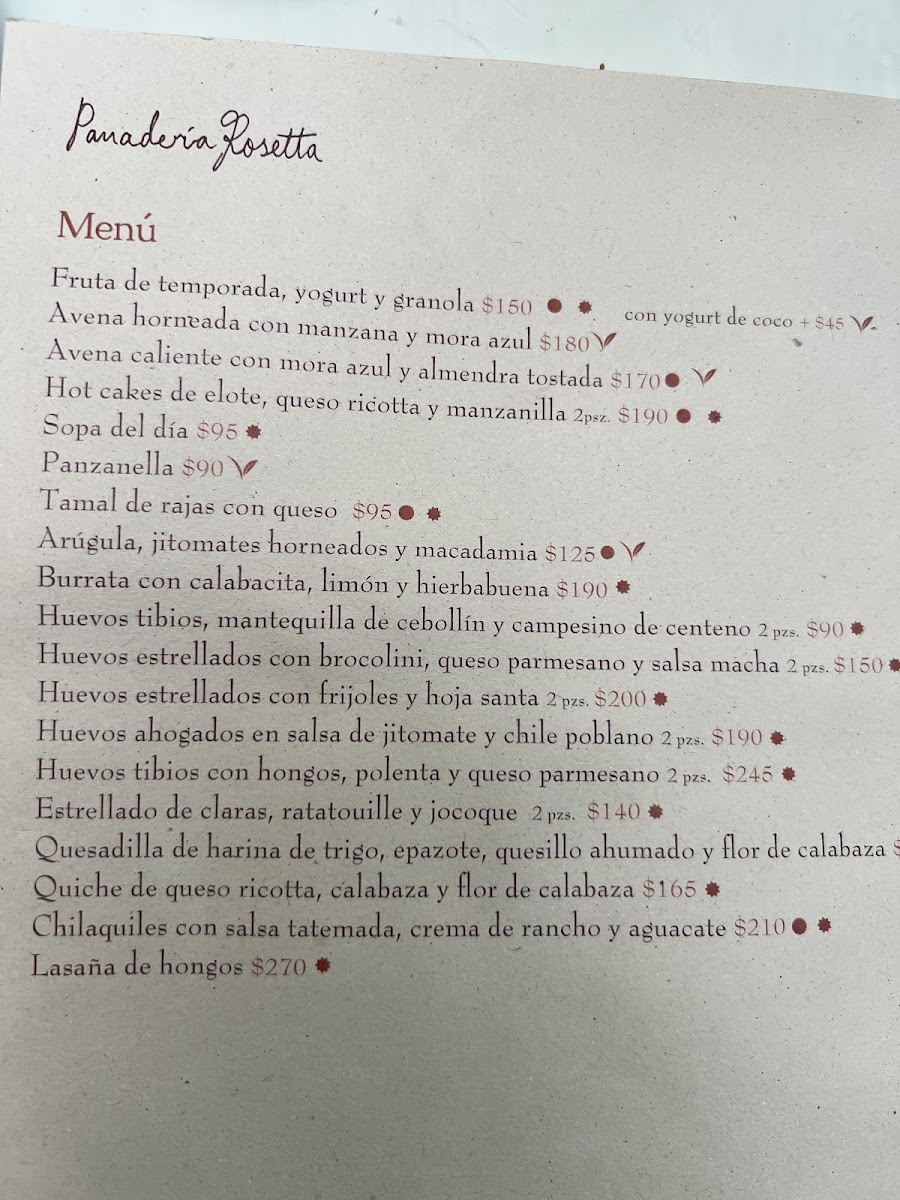 Panadería Rosetta
Menú
Fruta de temporada, yogurt y granola $150 con yogurt de coco + $45
Avena horneada con manzana y mora azul $180
Avena caliente con mora azul y almendra tostada $170
Hot cakes de elote, queso ricotta y manzanilla 2psz. $190
Sopa del día $95
Panzanella $90
Tamal de rajas con queso $95
Arúgula, jitomates horneados y macadamia $125
Burrata con calabacita, limón y hierbabuena $190
Huevos tibios, mantequilla de cebollín y campesino de centeno 2 pzs. $90
Huevos estrellados con brocolini, queso parmesano y salsa macha 2 pzs. $150
Huevos estrellados con frijoles y hoja santa 2 pzs. $200
Huevos ahogados en salsa de jitomate y chile poblano 2 pzs. $190
Huevos tibios con hongos, polenta y queso parmesano 2 pzs. $245
Estrellado de claras, ratatouille y jocoque 2 pzs. $140
Quesadilla de harina de trigo, epazote, quesillo ahumado y flor de calabaza
Quiche de queso ricotta, calabaza y flor de calabaza $165
Chilaquiles con salsa tatemada, crema de rancho y aguacate $210
Lasaña de hongos $270